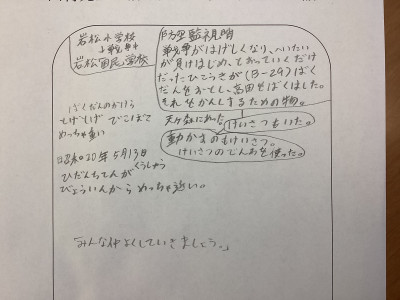 岩松小学校
↓戦争中
岩松国民学校
防空監視哨
戦争がはげしくなり、へいたい
が負けはじめ、とおっていくだけ
だったひこうきが(B-29)ばく
だんをおとし、富田をばくはした。
それをかんしするための物。
天ヶ森にあった。
けいさつもいた。
動かすのもけいさつ。
けいさつのでんわを使った。
ばくだんのかけら
とげとげ でこぼこ
めっちゃ重い
昭和20年5月13日
くうしゅう
ひだんちてんが
びょういんから めっちゃ近い。
「みんな仲よくしていきましょう。」